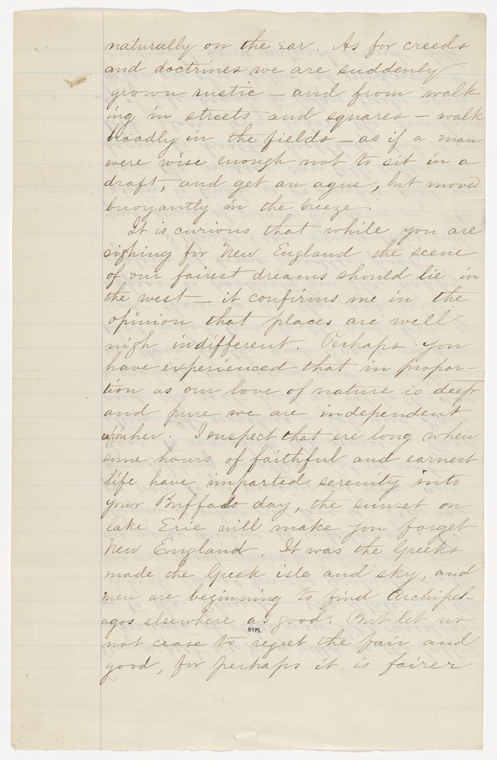 naturally on the ear. As for creeds
and doctrines we are suddenly
grown rustic — and from walk-
ing in streets and squares — walk
broadly in the fields — as if a man
were wise enough not to sit in a
draft, and get an ague, but moved
buoyantly in the breeze.
It is curious that while you are
sighing for New England the scene
of our fairest dreams should lie in
the west — it confirms me in the
opinion that places are well
nigh indifferent. Perhaps you
have experienced that in propor-
tion as our love of nature is deep
and pure we are independent
upon her. I suspect that ere long when
some hours of faithful and earnest
life have imparted serenity into
your Buffalo day, the sunset on
lake Erie will make you forget
New England. It was the Greeks
made the Greek isle and sky, and
men are beginning to find Archipel-
agos elsewhere as good. But let us
not cease to regret the fair and
good, for perhaps it is fairer
NYPL